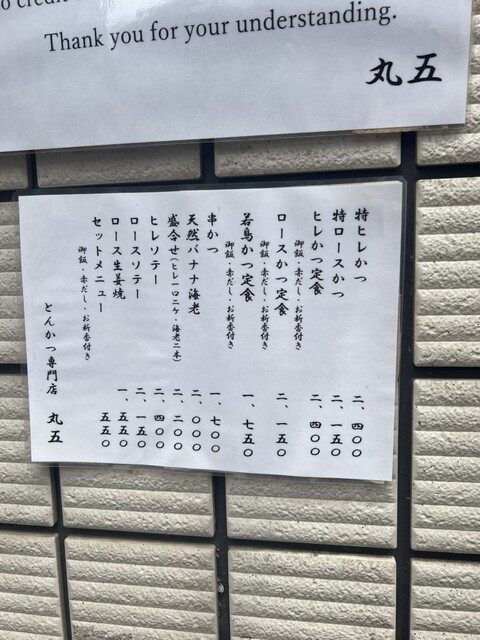 o credit
Thank you for your understanding.
丸五
特ヒレかつ 二、四〇〇
特ロースかつ 二、一五〇
ヒレかつ定食 二、四〇〇
御飯・赤だし・お新香付き
ロースかつ定食 二、一五〇
御飯・赤だし・お新香付き
若鳥かつ定食 一、七五〇
御飯・赤だし・お新香付き
串かつ 一、七〇〇
天然バナナ海老 二、〇〇〇
盛合せ(ヒレ一口二ケ・海老二本) 二、二〇〇
ヒレソテー 二、四〇〇
ロースソテー 二、一五〇
ロース生姜焼 一、五五〇
セットメニュー 五五〇
御飯・赤だし・お新香付き
とんかつ専門店 丸五